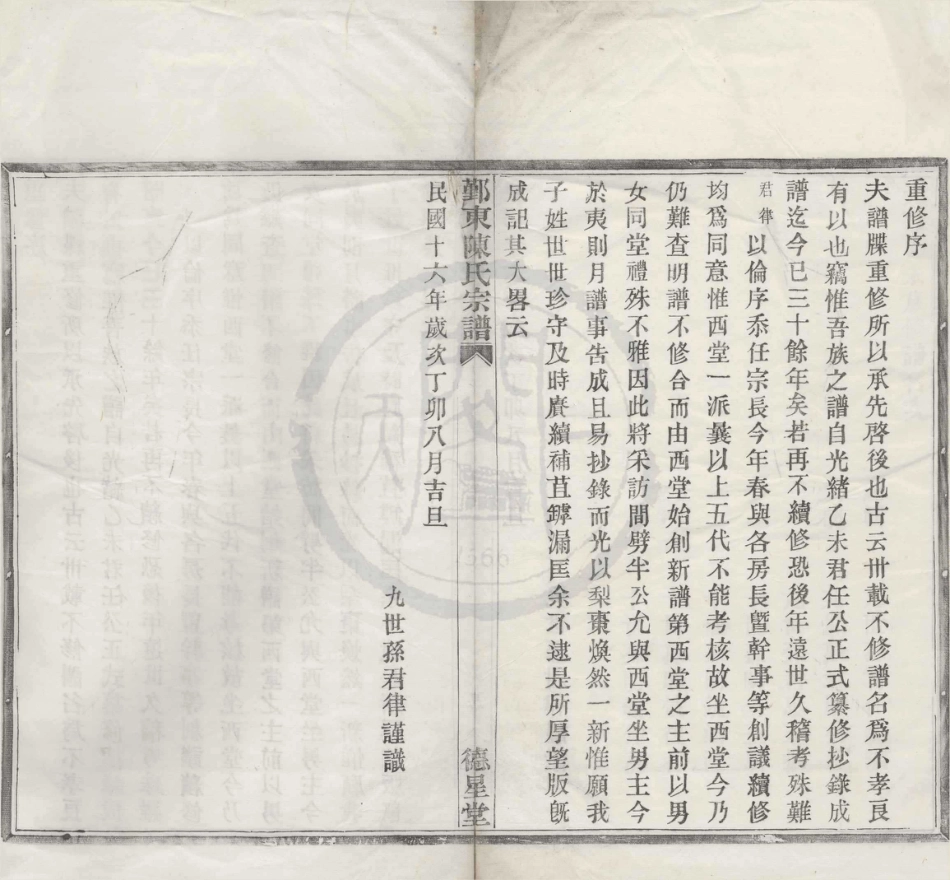 重修序
夫譜牒重修所以承先啓後也古云卅載不修譜名爲不孝良
有以也竊惟吾族之譜自光緒乙未君任公正式纂修抄錄成
譜迄今已三十餘年矣若再不續修恐後年遠世久稽考殊難
君律以倫序忝任宗長今年春與各房長曁幹事等創議續修
均爲同意惟西堂一派曩以上五代不能考核故坐西堂今乃
仍難查明譜不修合而由西堂始創新譜第西堂之主前以男
女同堂禮殊不雅因此將采訪間劈半公允與西堂坐男主今
於夷則月譜事告成且易抄錄而光以梨棗煥然一新惟願我
子姓世世珍守及時賡續補苴罅漏匡余不逮是所厚望版旣
成記其大畧云
鄞東陳氏宗譜
德星堂
民國十六年歲次丁卯八月吉旦
九世孫君律謹識